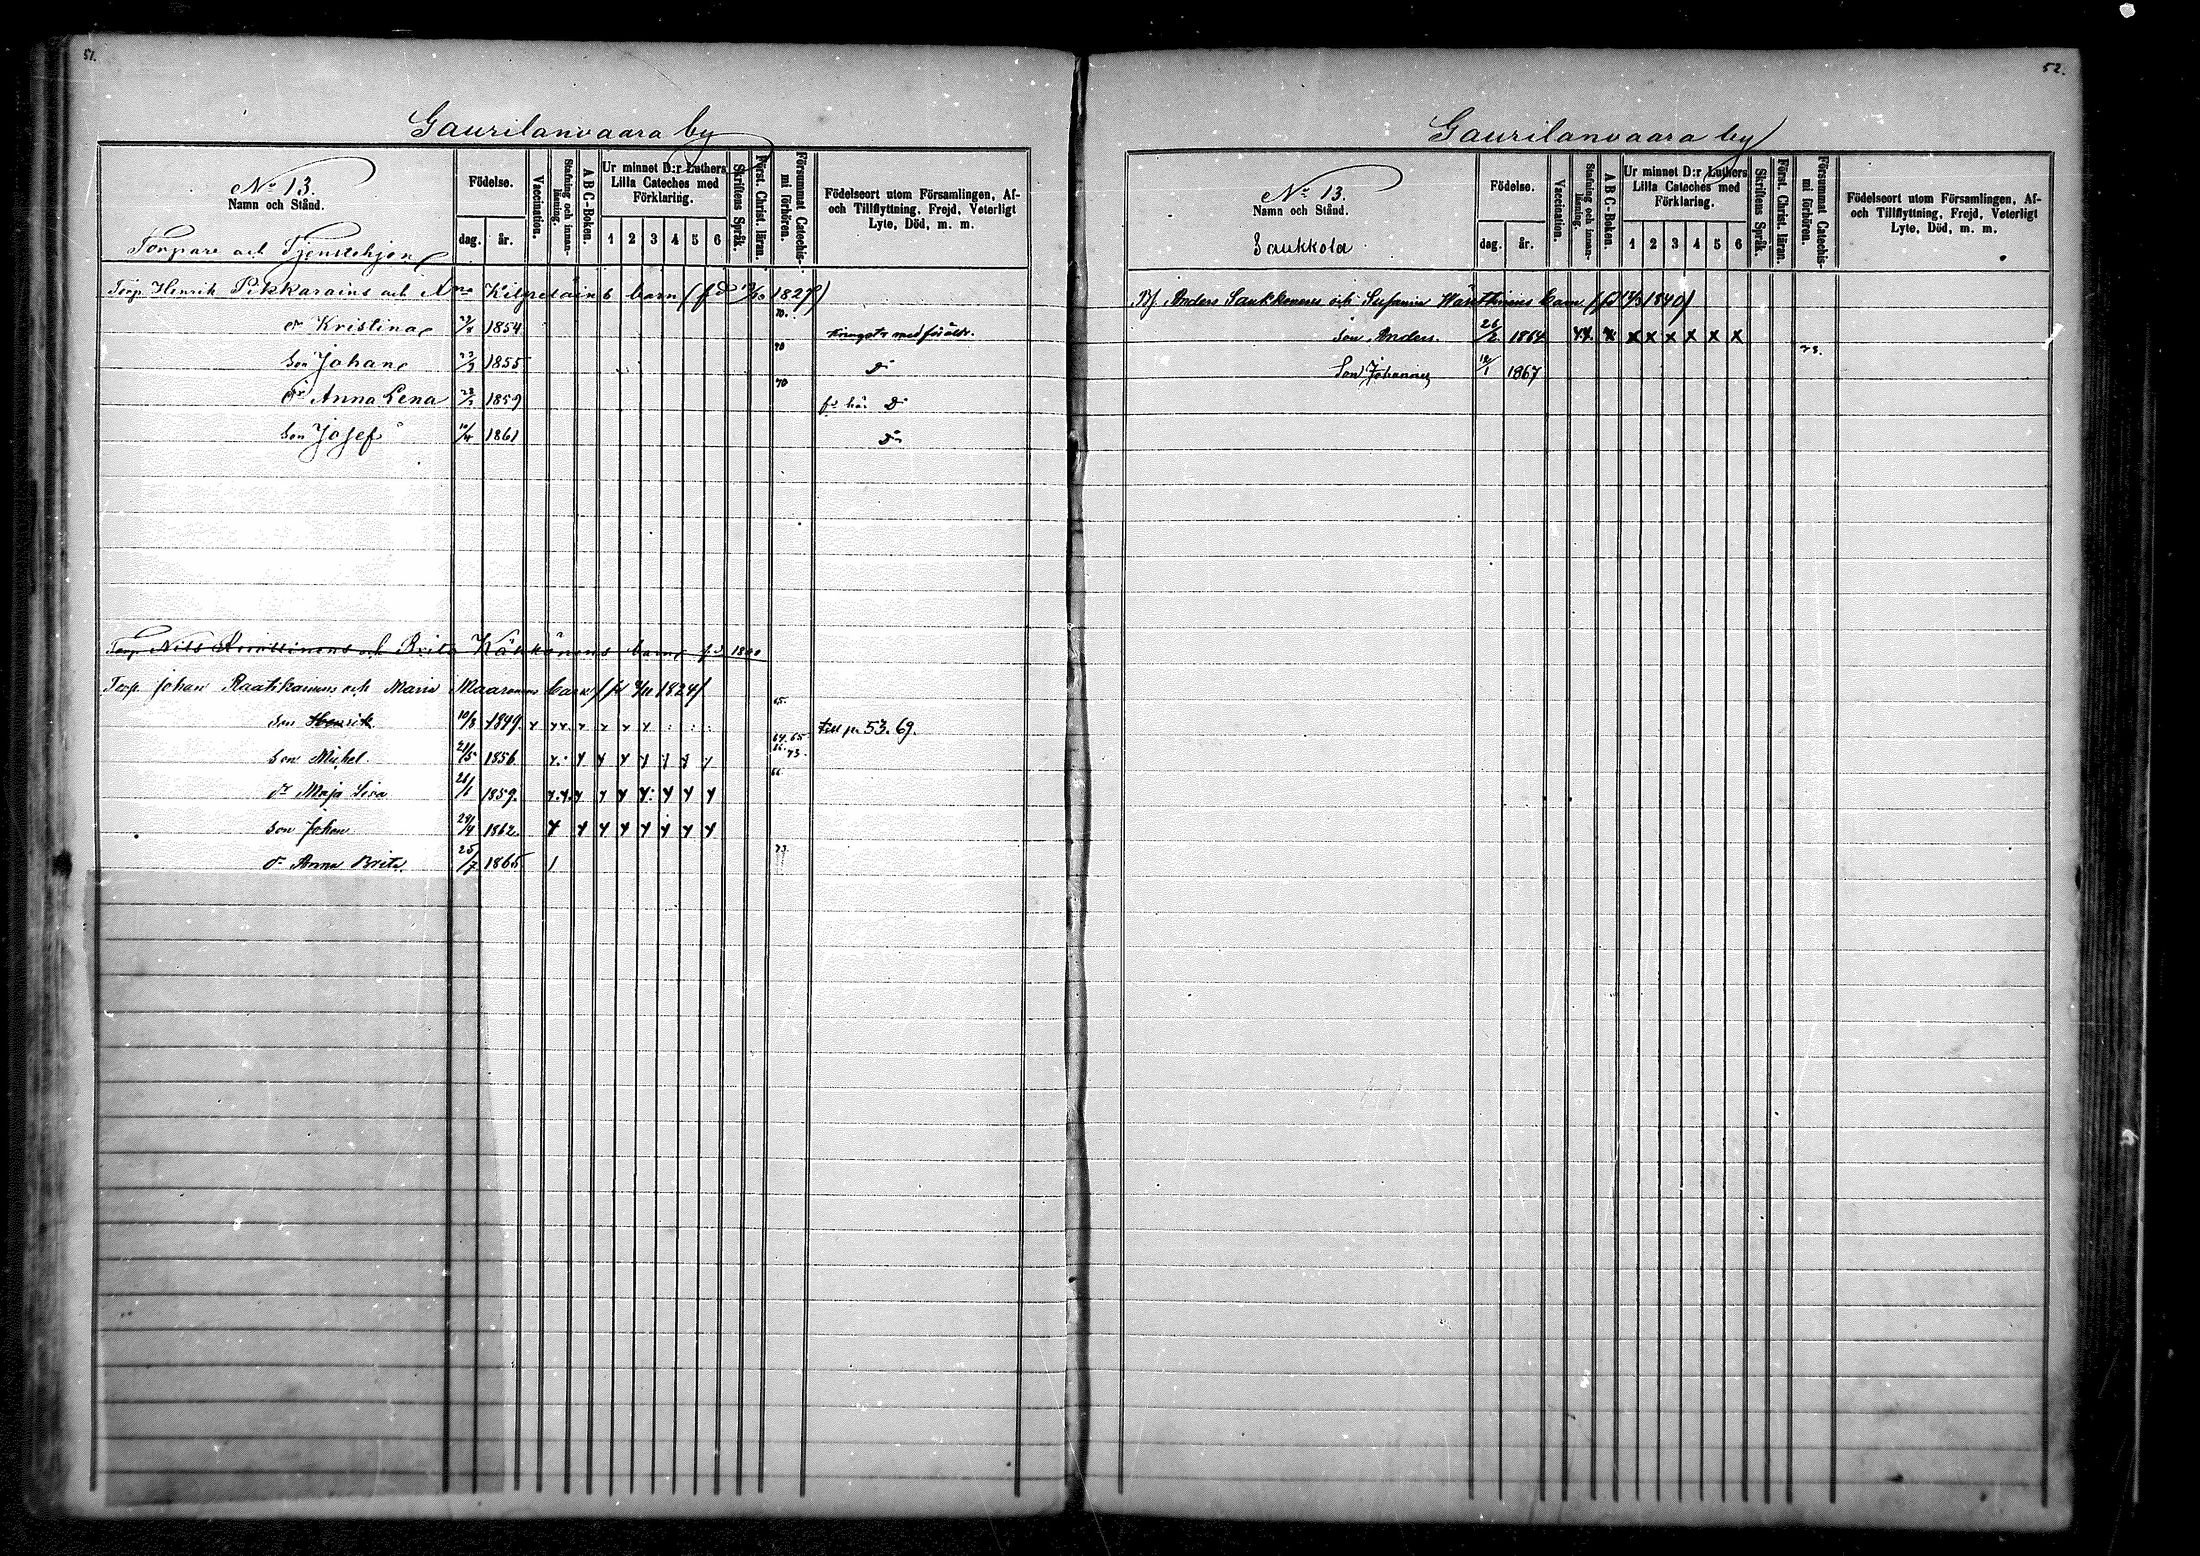 51.
Gaurilanvaara by
No 13.
Namn och Stånd.
Födelse.
dag. år.
Vaccination.
Stafning och innanläsning.
A B C-Boken.
Ur minnet D:r Luthers Lilla Cateches med Förklaring.
1 2 3 4 5 6
Skriftens Språk.
Först. Christ. läran.
Försummat Catechismi förhören.
Födelseort utom Församlingen, Af- och Tillflyttning, Frejd, Veterligt Lyte, Död, m. m.
Torpare och Tjenstehjon
Torp. Henrik Pikkarains och barn (fd 1827)
70.
dr Kristina 1854 med föräldr.
70
Son Johan 23/9 1855 do
70
dr Anna Lena 1859 do
Son Josef 10/4 1861 do
Torp Nils och Brita barn fd
Torp. Johan Raatikainens och Maria Maaronens barn (fd 1824)
65.
Son Henrik 10/8 1849. till p. 53. 69.
64. 65
73.
Son Mikel. 21/5 1856
dr Maja Lisa 26/1 1859.
Son Johan 24/4 1862.
73.
dr Anna Brita. 25/7 1865
52.
Gaurilanvaara by
No 13.
Namn och Stånd.
Saukkola
Födelse.
dag. år.
Vaccination.
Stafning och innanläsning.
A B C-Boken.
Ur minnet D:r Luthers Lilla Cateches med Förklaring.
1 2 3 4 5 6
Skriftens Språk.
Först. Christ. läran.
Försummat Catechismi förhören.
Födelseort utom Församlingen, Af- och Tillflyttning, Frejd, Veterligt Lyte, Död, m. m.
Anders Saukkonens och Susanna barn (fd 1840)
Son Anders. 26/2 1864 x x x x x x
73.
Son Johannes 1867